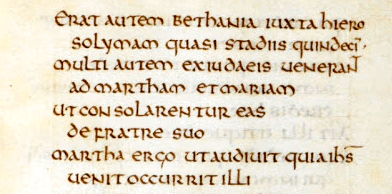 erat autem bethania iuxta hiero
solymam quasi stadiis quindeci̅·
multi autem ex iudaeis uenerant
ad martham et mariam
ut consolarentur eas
de fratre suo
martha ergo ut audiuit quia ih̅s̅
uenit occurrit illi